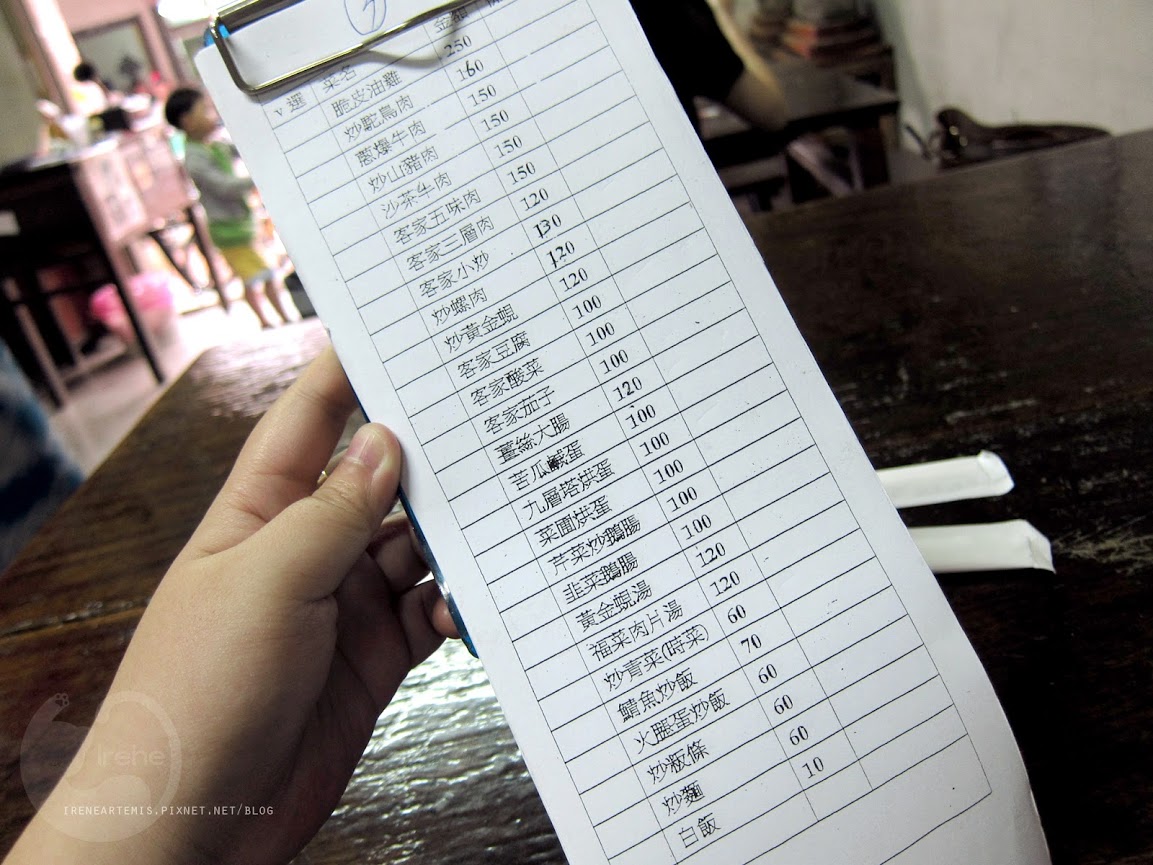 v 選 菜名 金額
脆皮油雞 250
炒鴕鳥肉 160
蔥爆牛肉 150
炒山豬肉 150
沙茶牛肉 150
客家五味肉 150
客家三層肉 120
客家小炒 130
炒螺肉 120
炒黃金蜆 120
客家豆腐 100
客家酸菜 100
客家茄子 100
薑絲大腸 120
苦瓜鹹蛋 100
九層塔烘蛋 100
菜圃烘蛋 100
芹菜炒鵝腸 100
韭菜鵝腸 100
黃金蜆湯 120
福菜肉片湯 120
炒青菜(時菜) 60
鯖魚炒飯 70
火腿蛋炒飯 60
炒粄條 60
炒麵 60
白飯 10
irene
IRENEARTEMIS.PIXNET.NET/BLOG